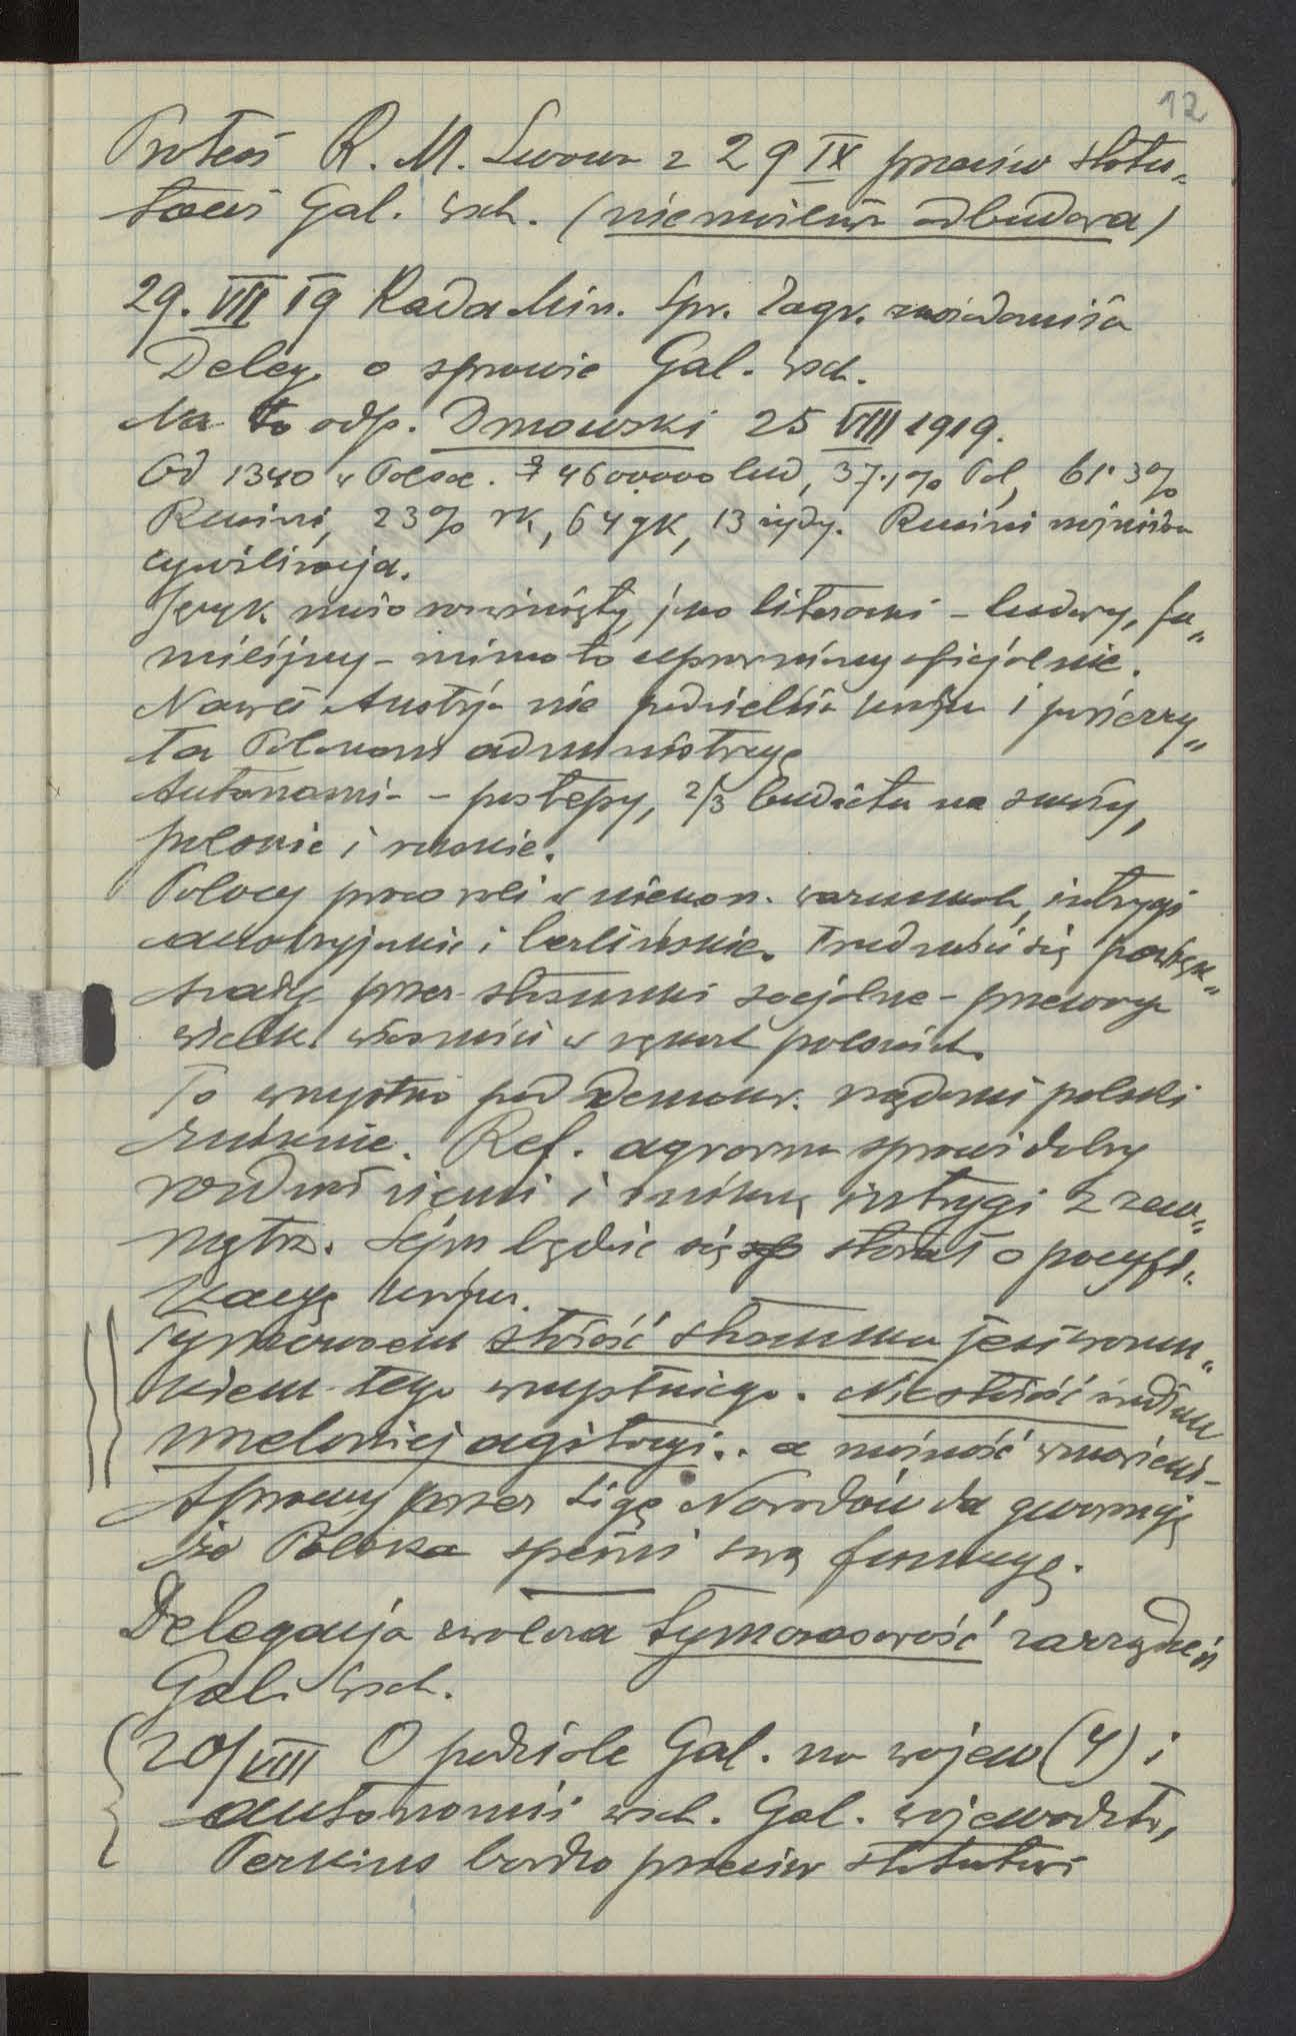 12
Protest R. M. Lwowa z 29 IX przeciw statu-
towi Gal. wsch. (niemożliwa odbudowa)
29. VII 19 Rada Min. Spr. Zagr. zawiadomiła
Deleg. o sprawie Gal. wsch.
Na to odp. Dmowski 25 VIII 1919.
Od 1340 w Polsce. 4600000 lud, 37.1% Pol, 61.3%
Rusini, 23% rk, 64 gk, 13 żydy. Rusini niższa
cywilizacja.
Język mało rozwinięty, jako literacki - ludowy, fa-
milijny - mimo to uprawniony oficjalnie.
Nawet Austrja nie podzieliła kraju i powierzy-
ła Polakom administrację
Autonomia - postępy, 2/3 budżetu na szkoły,
polskie i ruskie.
Polacy pracowali w niekorz. warunkach, intrygi
austryjackie i berlińskie. Trudności się powięk-
szały przez stosunki socjalne - przewaga
wielk. własności w rękach polskich.
To wszystko pod demokr. rządami polski
zniknie. Ref. agrarna sprawiedliwy
rozdział ziemi i znikną intrygi z zew-
nątrz. Sejm będzie się starał o pacyfi-
kację kraju.
Tymczasem stałość stosunku jest warun-
kiem tego wszystkiego. Niestałość źródłem
wszelakiej agitacji.. a możność wznowienia
sprawy przez Ligę Narodów da gwarancję
że Polska spełni swą funkcję.
Delegacja zwalcza tymczasowość zarządzeń
Gal. wsch.
20/VIII O podziale Gal. na wojew (4) i
autonomii wsch. Gal. województw,
Perkins bardzo przeciw statutowi